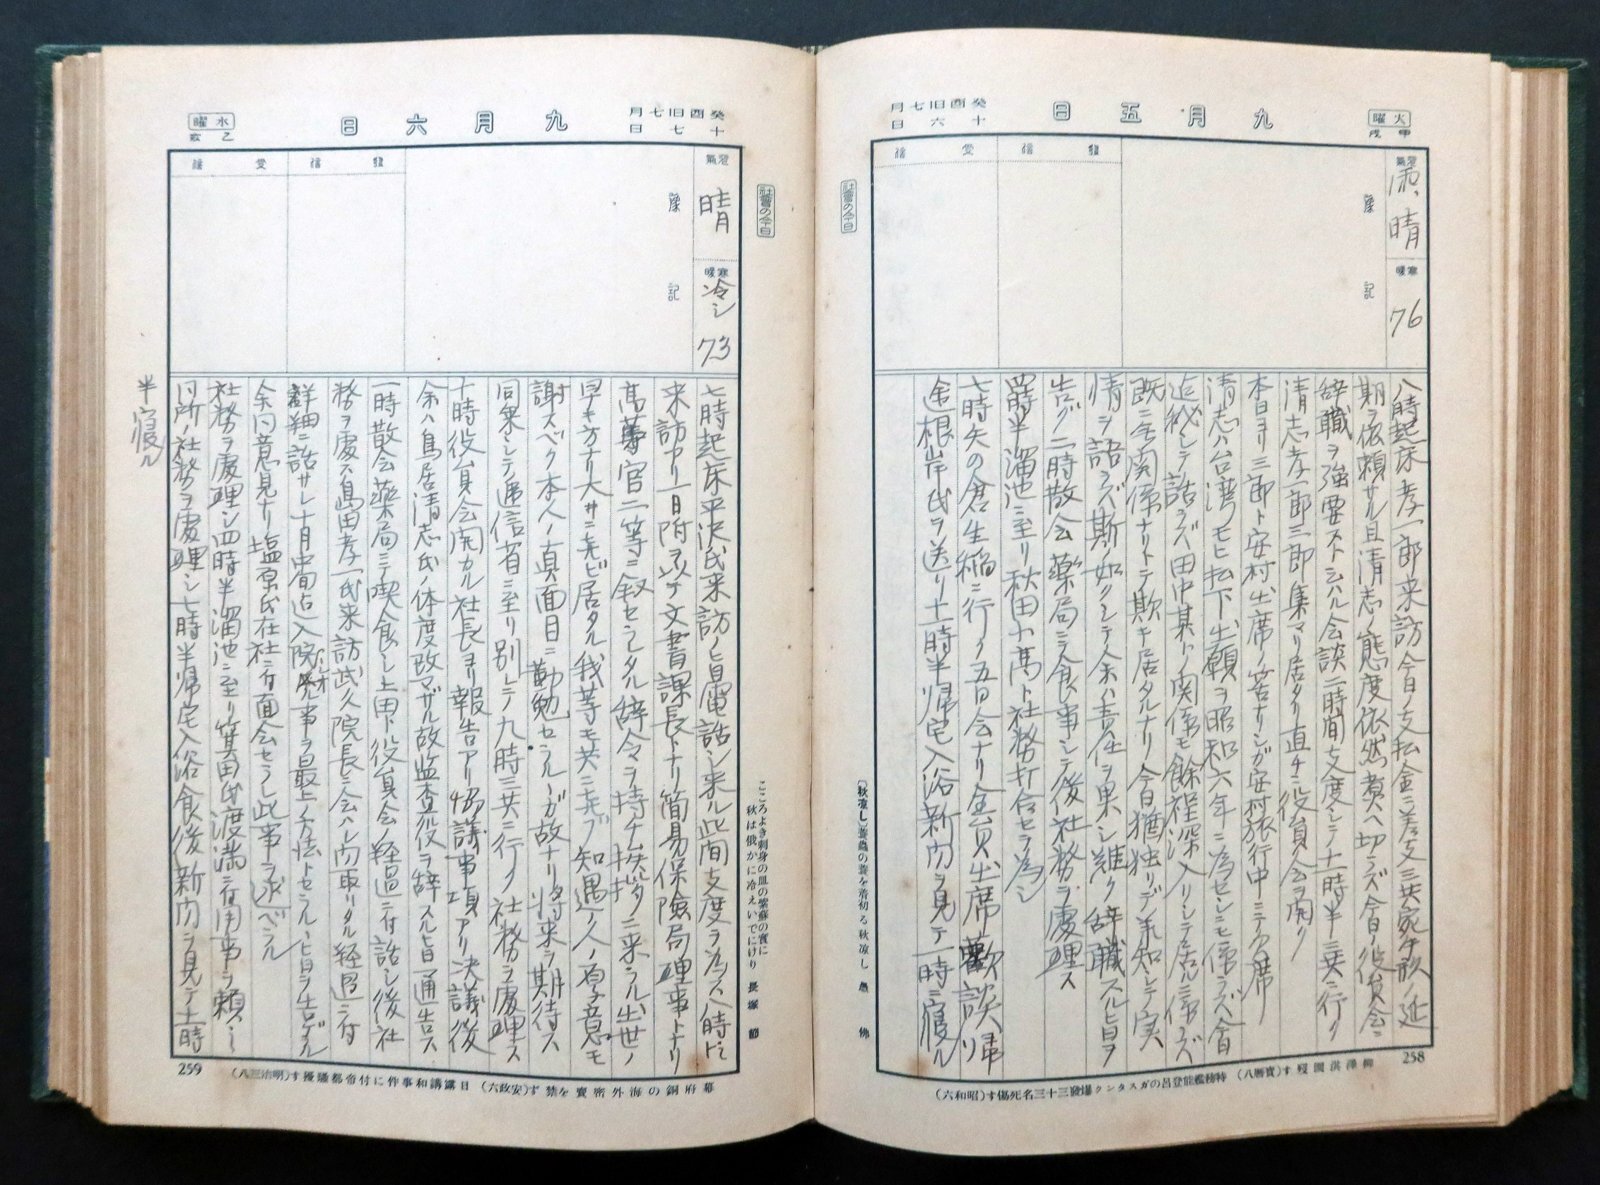 癸酉旧七月十六日
九月五日
火曜
甲戌
天気
雨、晴
寒暖
76
予記
発信
受信
社会の今日
八時起床孝一郎来訪今日ノ支払金ニ差支三共家生形ノ延
期ヲ依頼サル且清志ノ態度依然煮ヘ切ラズ今日ノ役員会ニ
辞職ヲ強要スト云ハル会談二時間支度シテ十一時半三共ニ行ク
清志孝一郎三郎集マリ居タリ直チニ役員会ヲ開ク
本日ヨリ三郎ト安村出席ノ筈ナリシガ安村旅行中ニテ欠席
清志ハ台湾モヒ払下出願ヲ昭和六年ニ為セシニモ係ラズ今日
迄秘シテ語ラズ田中某トノ関係モ余程深入リシテ居ルニ係ラズ
既ニ無関係ナリトテ欺キ居タルナリ今日猶独リデ承知シテ実
情ヲ語ラズ斯ノ如クシテ余ハ責任ヲ果シ難ク辞職スル旨ヲ
告グ二時散会薬局ニテ食事シテ後社務ヲ処理ス
四時半溜池ニ至リ秋田小高ト社務打合セヲ為シ
七時矢の倉生稲ニ行ク五日会ナリ全員出席歓談帰
途根岸氏ヲ送リ十一時半帰宅入浴新聞ヲ見テ一時ニ寝ル
〔秋凉し〕蓑虫の蓑を着初る秋凉し 愚佛
258
柳沢淇園歿す(宝暦八) 特務艦能登呂のガスタンク爆発三十三名死傷す(昭和六)
癸酉旧七月十七日
九月六日
水曜
乙亥
天気
晴
寒暖
冷シ
73
予記
発信
受信
社会の今日
七時起床平沢氏来訪ノ旨電話シ来ル此間支度ヲ為ス八時ドシ
来訪アリ一日附ヲ以テ文書課長トナリ簡易保険局理事トナリ
高等官二等ニ叙セラレタル辞令ヲ持チ挨拶ニ来ラル出世ノ
早キ方ナリ大サニ喜ビ居タル我等モ共ニ喜ブ知遇ノ人ノ厚意モ
謝スベク本人ノ真面目ニ勤勉セラルルガ故ナリ将来ヲ期待ス
同乗シテ逓信省ニ至リ別レテ九時三共ニ行ク社務ヲ処理ス
十時役員会開カル社長ヨリ報告アリ協議事項アリ決議後
余ハ鳥居清志氏ノ体度改マザル故監査役ヲ辞スル旨通告ス
一時散会薬局ニテ喫食シ上田ト役員会ノ経過ニ付話シ後社
務ヲ処ス島田孝一氏来訪武久院長ニ会ハレ聞取リタル経過ニ付
詳細ニ話サレ十月中旬迄入院ノ事ヲ最上ノ方法トセラルル旨ヲ告ゲル
余同意見ナリ塩原氏在社ニ付面会セラレ此事ヲ述ベラル
社務ヲ処理シ四時半溜池ニ至リ箕田氏渡満ニ付用事ヲ頼ミ
同所ノ社務ヲ処理シ七時半帰宅入浴食後新聞ヲ見テ十一時
半寝ル
こころよき刺身の皿の紫蘇の実に
秋は俄かに冷えいでにけり 長塚 節
259
幕府銅の海外密売を禁ず(安政六) 日露講和事件に付帝都騒擾す(明治三八)